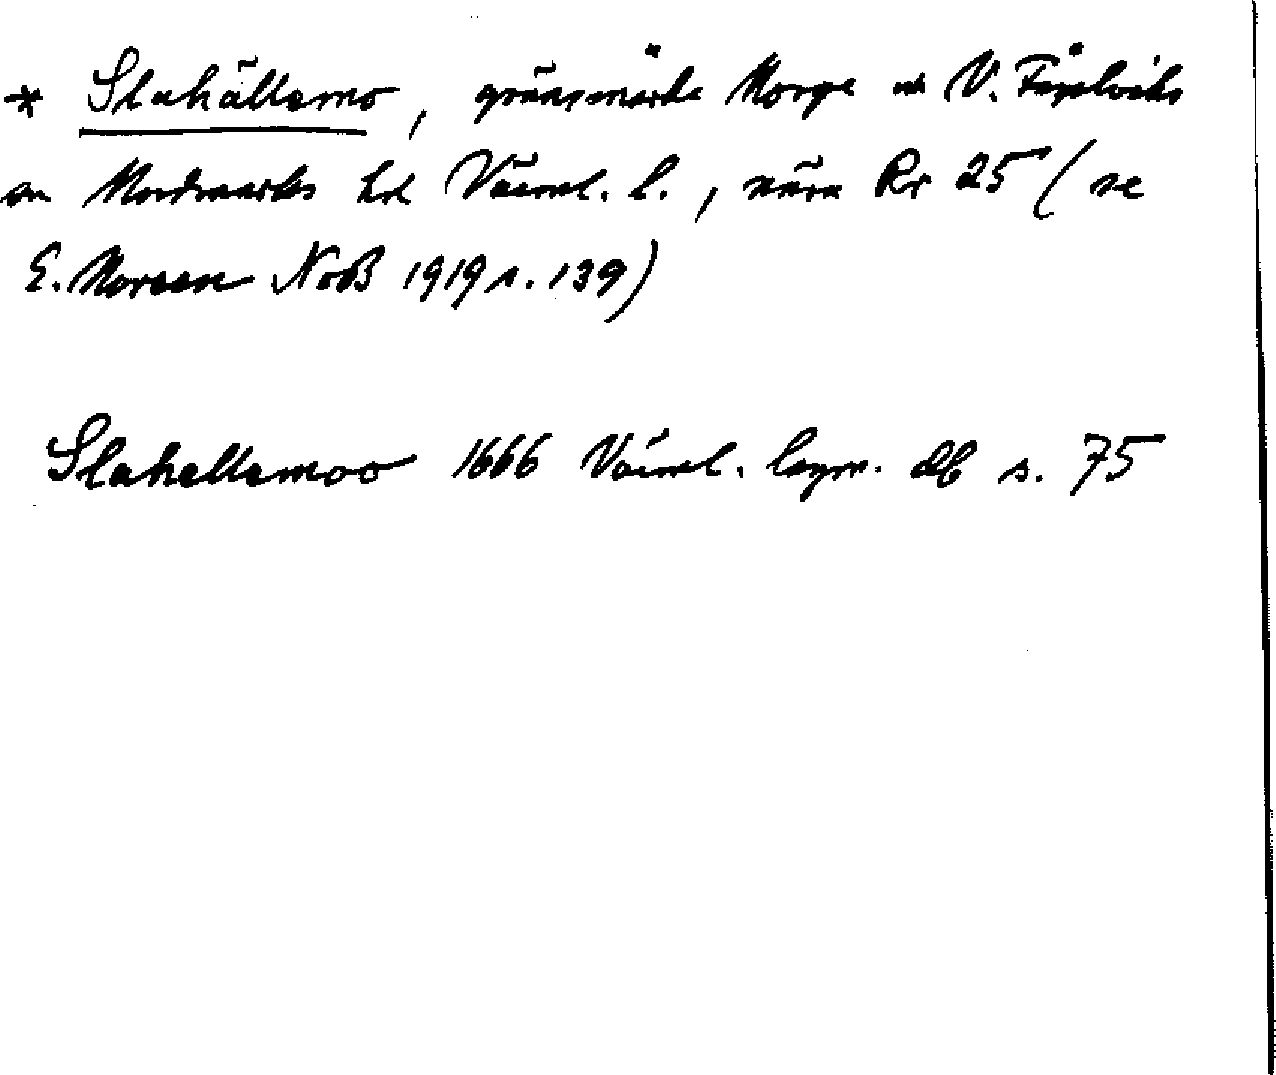 * Slahällemo, gränsmärke Norge och V. Fågelviks
sn Nordmarks hd Värml. l., nära Rr 25 (se
E. Noreen NoB 1919 s. 139)
Slahellemoo 1666 Värml. lagm. db s. 75